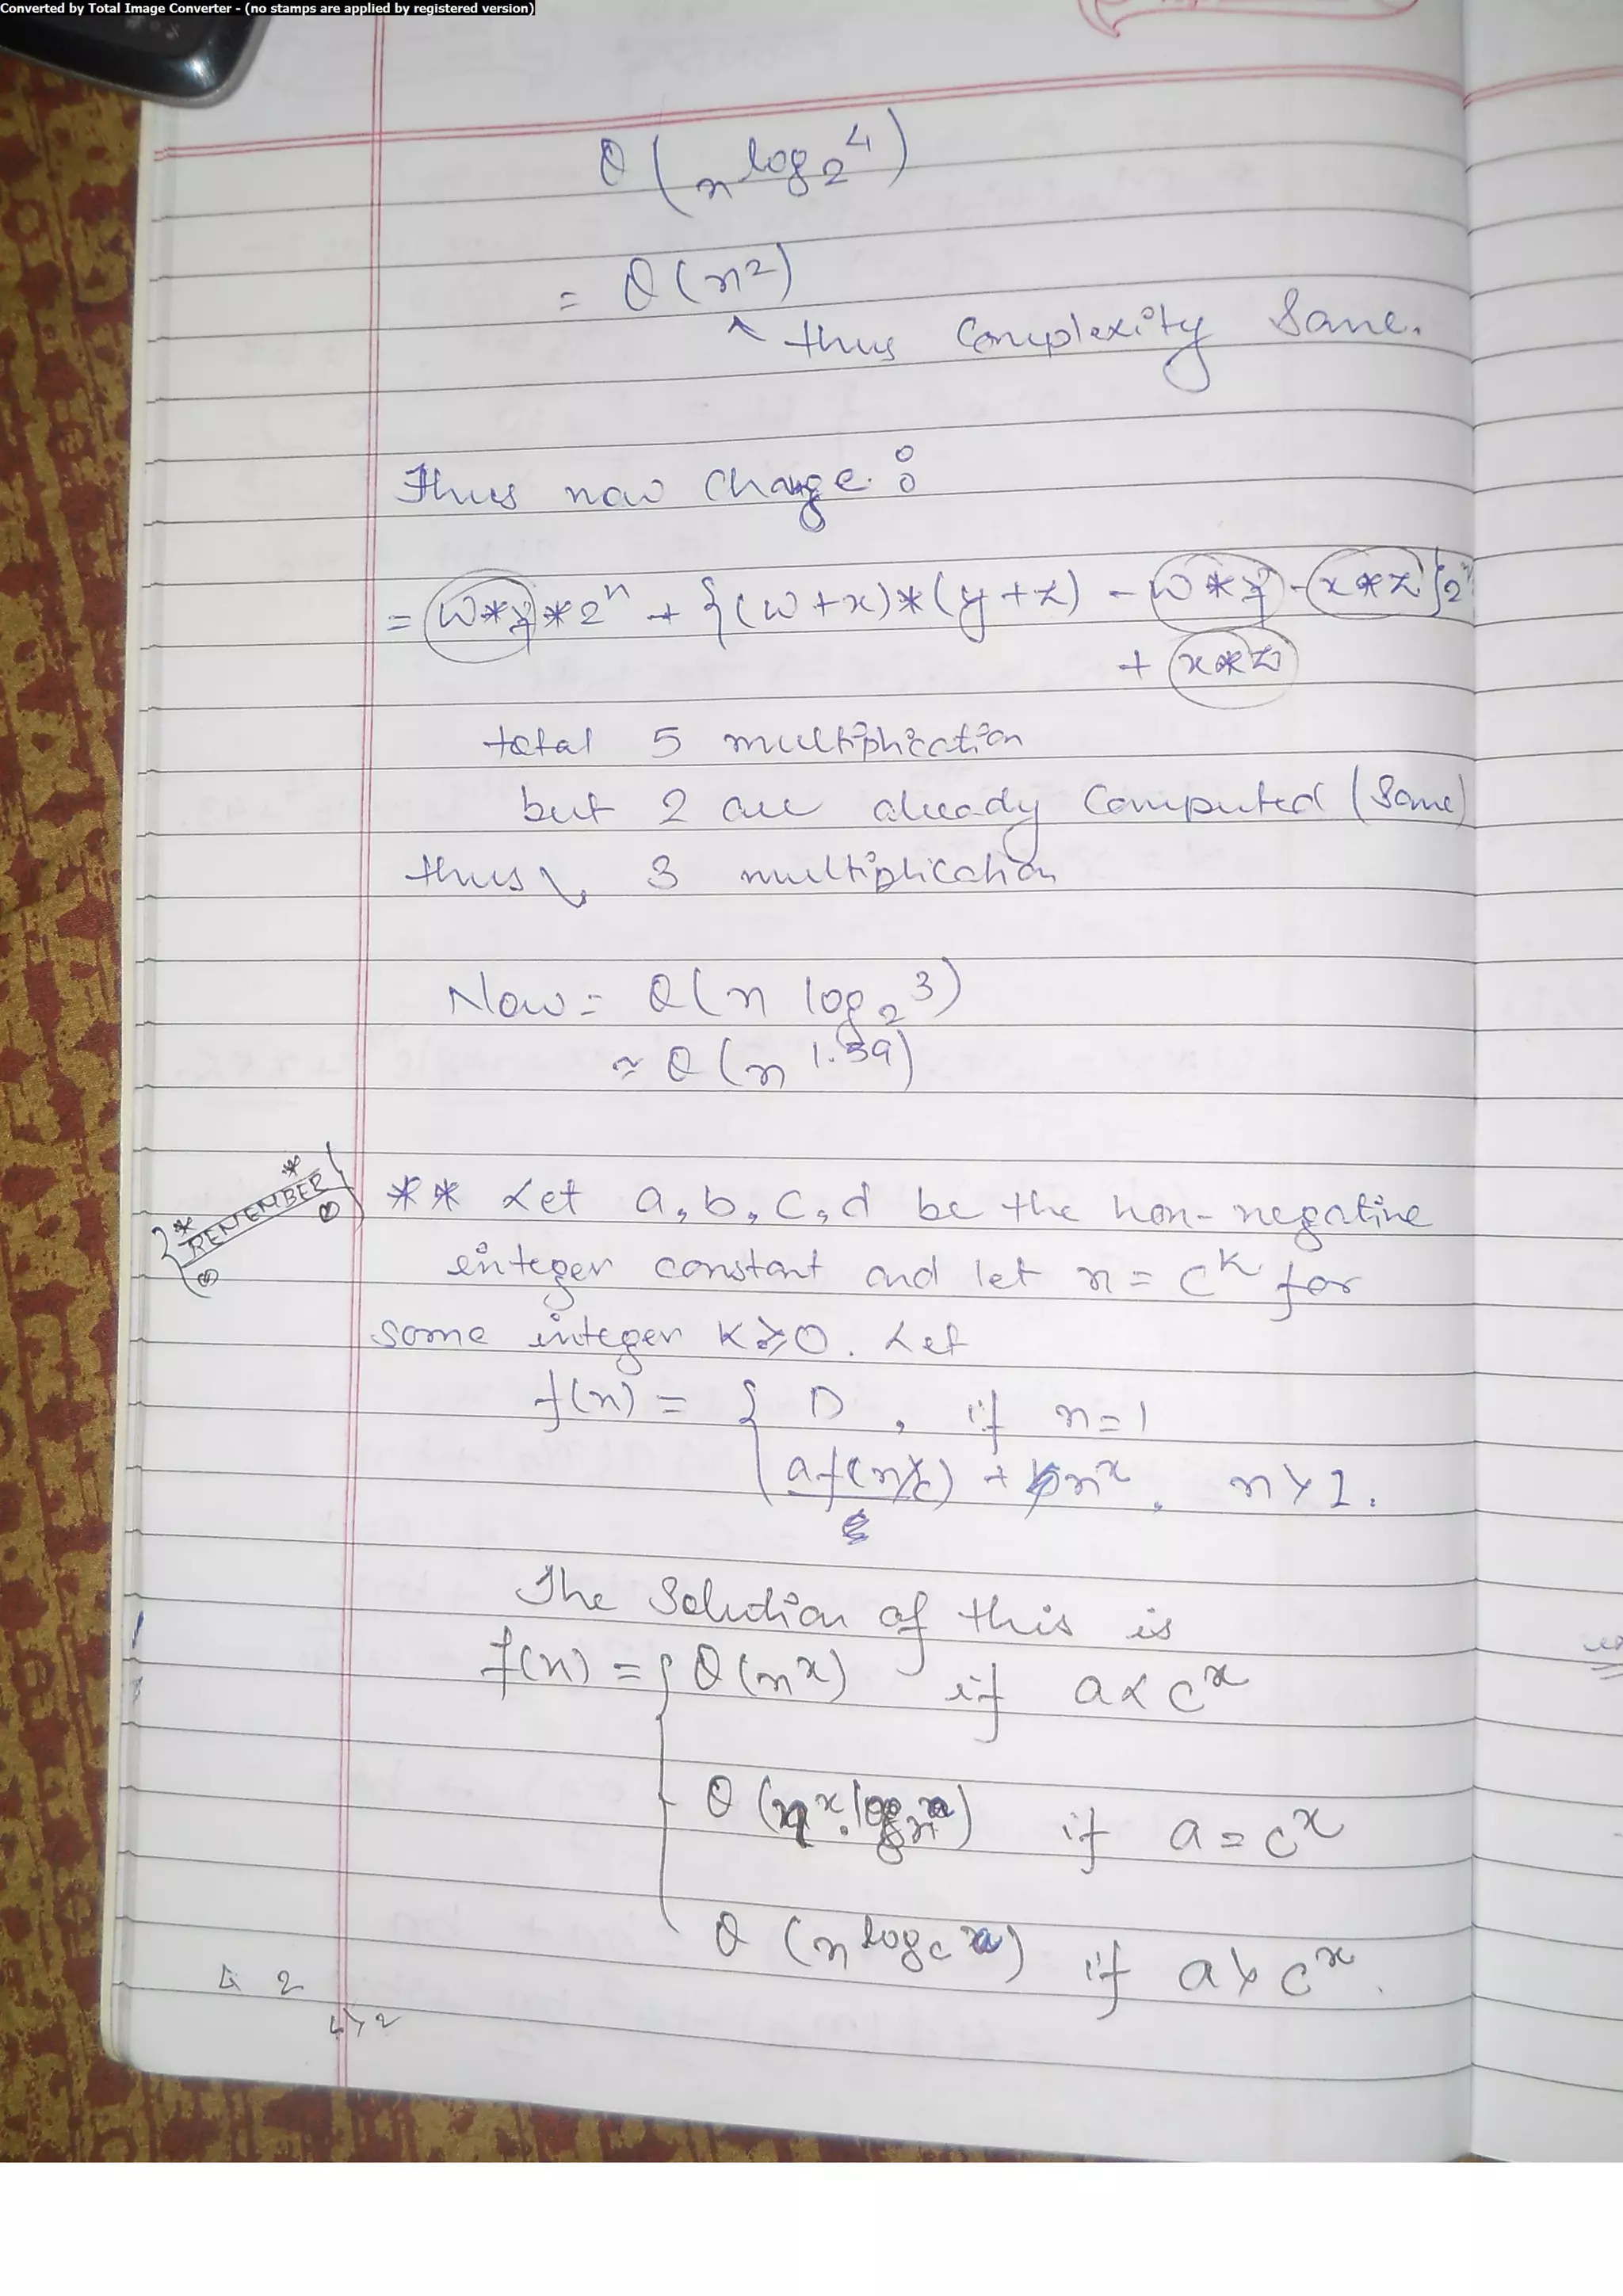 Converted by Total Image Converter - (no stamps are applied by registered version)
θ (n^log₂4)
= θ(n²)
↖ thus Complexity Same.
Thus now Change :
= w*y*2^n + {(w+x)*(y+z) - w*y - x*z}2^
+ x*z
total 5 multiplication
but 2 are already Computed (Same)
thus ↘ 3 multiplication
Now = θ(n log₂3)
≈ θ(n^1.59)
* REMEMBER *
** Let a, b, c, d be the non-negative
integer constant and let n = c^k for
some integer k≥0. Let
f(n) = { D , if n=1
af(n/c) + bn^x, n>1.
The Solution of this is
f(n) = { θ(n^x) if a<c^x
θ (n^x.log n) if a = c^x
θ (n^log_c a) if a>c^x.
4 2
4>2